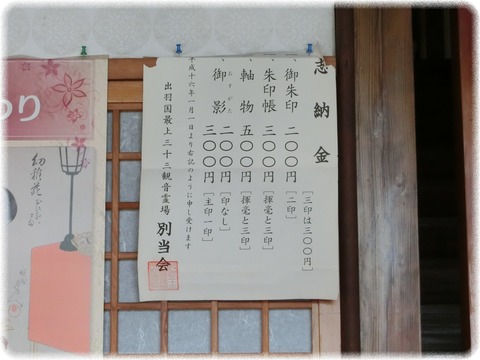 志納金
一、御朱印 二〇〇円 [二印]
[三印は三〇〇円]
一、朱印帳 三〇〇円 [揮毫と三印]
一、軸物 五〇〇円 [揮毫と三印]
一、御影 二〇〇円 [印なし]
おすがた
三〇〇円 [主印一印]
平成十六年一月一日より右記のように申し受けます
出羽国最上三十三観音霊場 別当会
わり